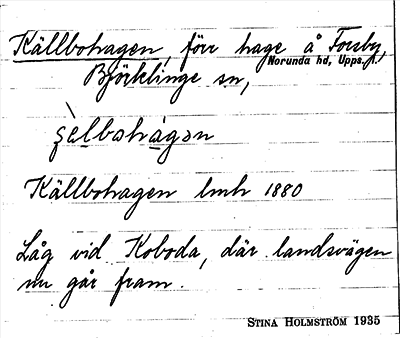 Källbohagen, förr hage å Forsby,
Norunda hd, Upps. l.
Björklinge sn,
Källbohagen lmh 1880
Låg vid Koboda, där landsvägen
nu går fram.
STINA HOLMSTRÖM 1935